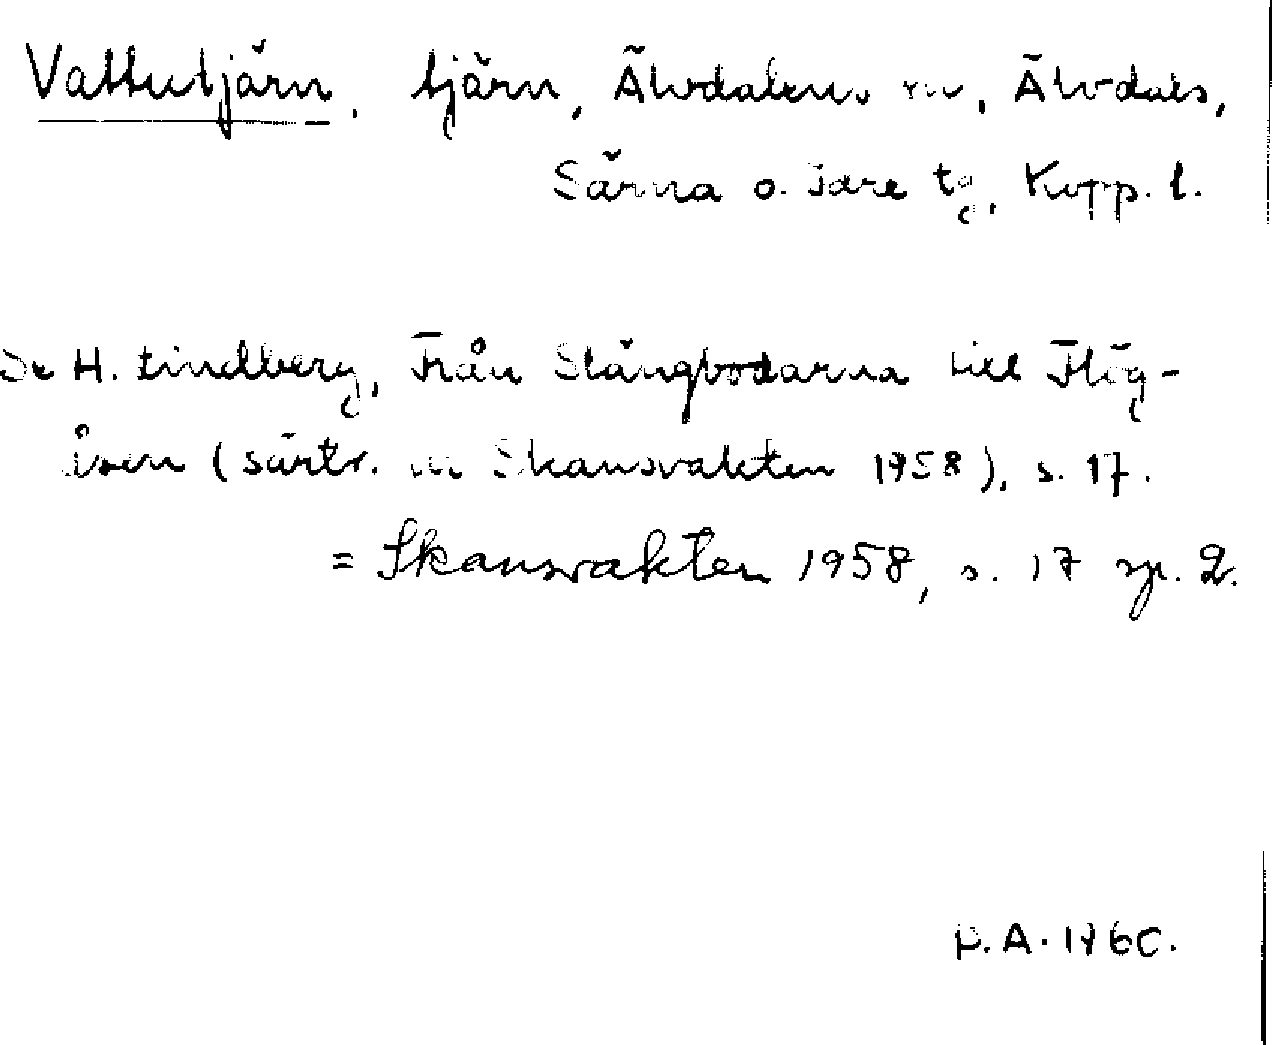 Vattutjärn, tjärn, Älvdalens sn, Älvdals,
Särna o. Idre tg, Kopp. l.
Se H. Lindberg, Från Stängbodarna till Flög-
åsen (särtr. ur Skansvakten 1958), s. 17.
= Skansvakten 1958, s. 17 sp. 2.
P.A. 1960.